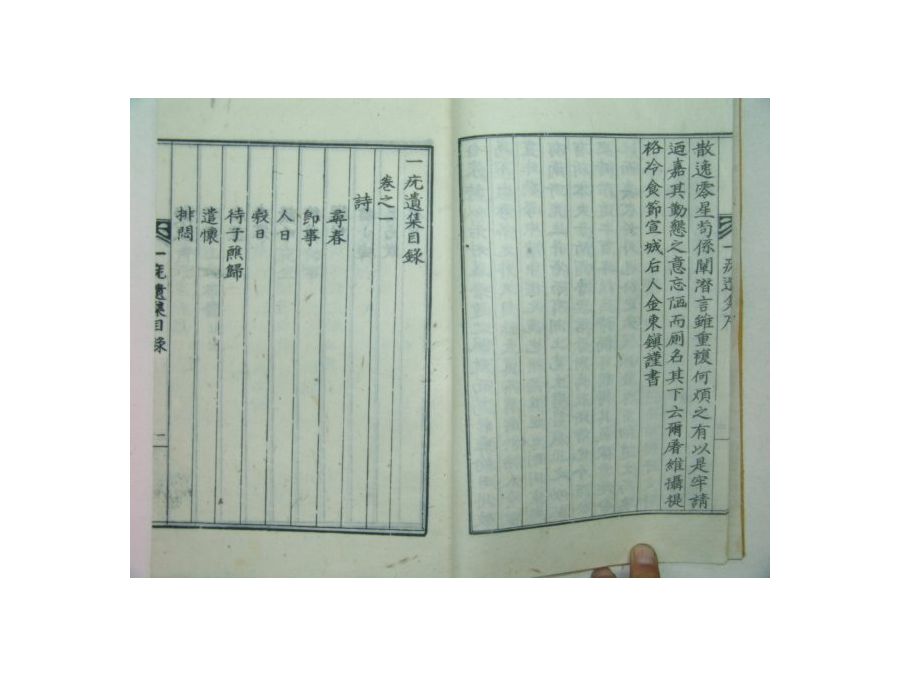 散逸零星苟係闡潛言雖重複何煩之有以是牢請
迺嘉其勤懇之意忘陋而厠名其下云爾屠維攝提
格冷食節宣城后人金東鎭謹書
一疣遺集目錄
卷之一
詩
尋春
卽事
人日
穀日
待子醮歸
遣懷
排悶
一疣遺集目錄
一